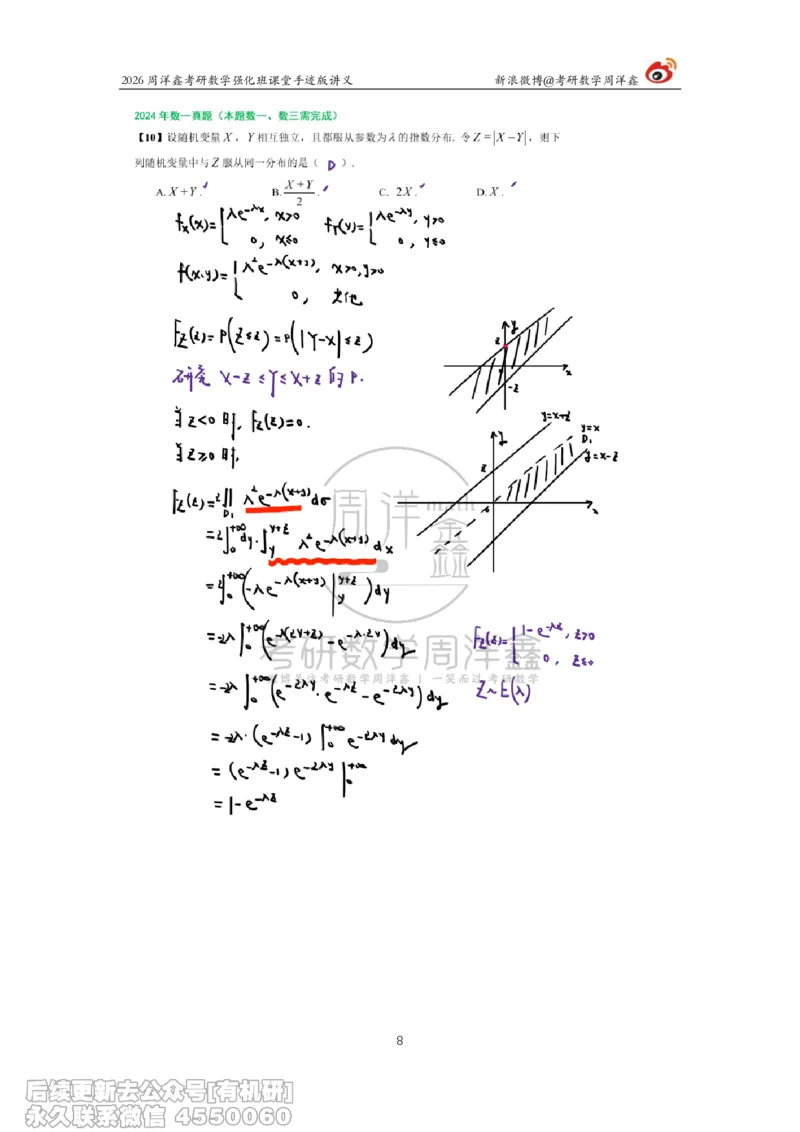 2026 周洋鑫考研数学强化班课堂手迹版讲义 新浪微博@考研数学周洋鑫
2024 年数一真题（本题数一、数三需完成）
【10】设随机变量 X ，Y 相互独立，且都服从参数为 λ 的指数分布. 令 Z = |X − Y| ，则下
列随机变量中与 Z 服从同一分布的是（ D ）.
A. X + Y . B. (X + Y)/2 . C. 2X . D. X .
f_X(x) = { λe^{-λx}, x>0 ; 0, x≤0 f_Y(y) = { λe^{-λy}, y>0 ; 0, y≤0
f(x,y) = { λ²e^{-λ(x+y)}, x>0, y>0 ; 0, 其他
F_Z(z) = P(Z≤z) = P(|Y-X|≤z)
研究 X-z ≤ Y ≤ X+z 的 P.
当 z<0 时, F_Z(z)=0.
当 z≥0 时,
F_Z(z) = 2∬_{D₁} λ²e^{-λ(x+y)} dσ
= 2∫_0^{+∞} dy · ∫_y^{y+z} λ²e^{-λ(x+y)} dx
= 2∫_0^{+∞} (-λe^{-λ(x+y)} |_y^{y+z}) dy
= -2λ ∫_0^{+∞} (e^{-λ(2y+z)} - e^{-λ·2y}) dy
= -2λ ∫_0^{+∞} (e^{-2λy} · e^{-λz} - e^{-2λy}) dy
= -2λ · (e^{-λz} - 1) ∫_0^{+∞} e^{-2λy} dy
= (e^{-λz} - 1) e^{-2λy} |_0^{+∞}
= 1 - e^{-λz}
y
z
x
-z
y=x+z
y
y=x
D₁
y=x-z
z
x
F_Z(z) = { 1-e^{-λz}, z>0 ; 0, z≤0
Z~E(λ)
周洋鑫
math
考研数学周洋鑫
考研数学周洋鑫 | 一笑而过 考研数学
8
后续更新去公众号[有机研]
永久联系微信 4550060